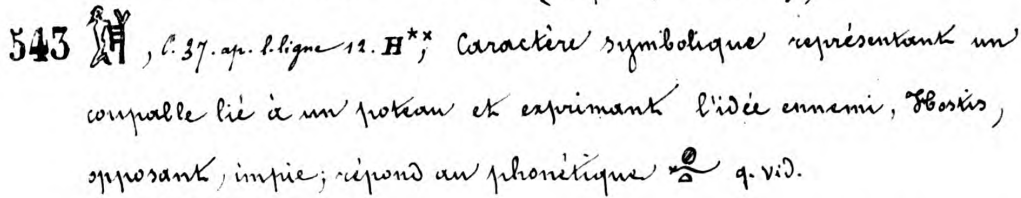 543 𓀏, C. 37. ap. l. ligne 12. H**; Caractère symbolique représentant un
coupable lié à un poteau et exprimant l'idée ennemi, Hostis,
opposant, impie; répond au phonétique q. vid.